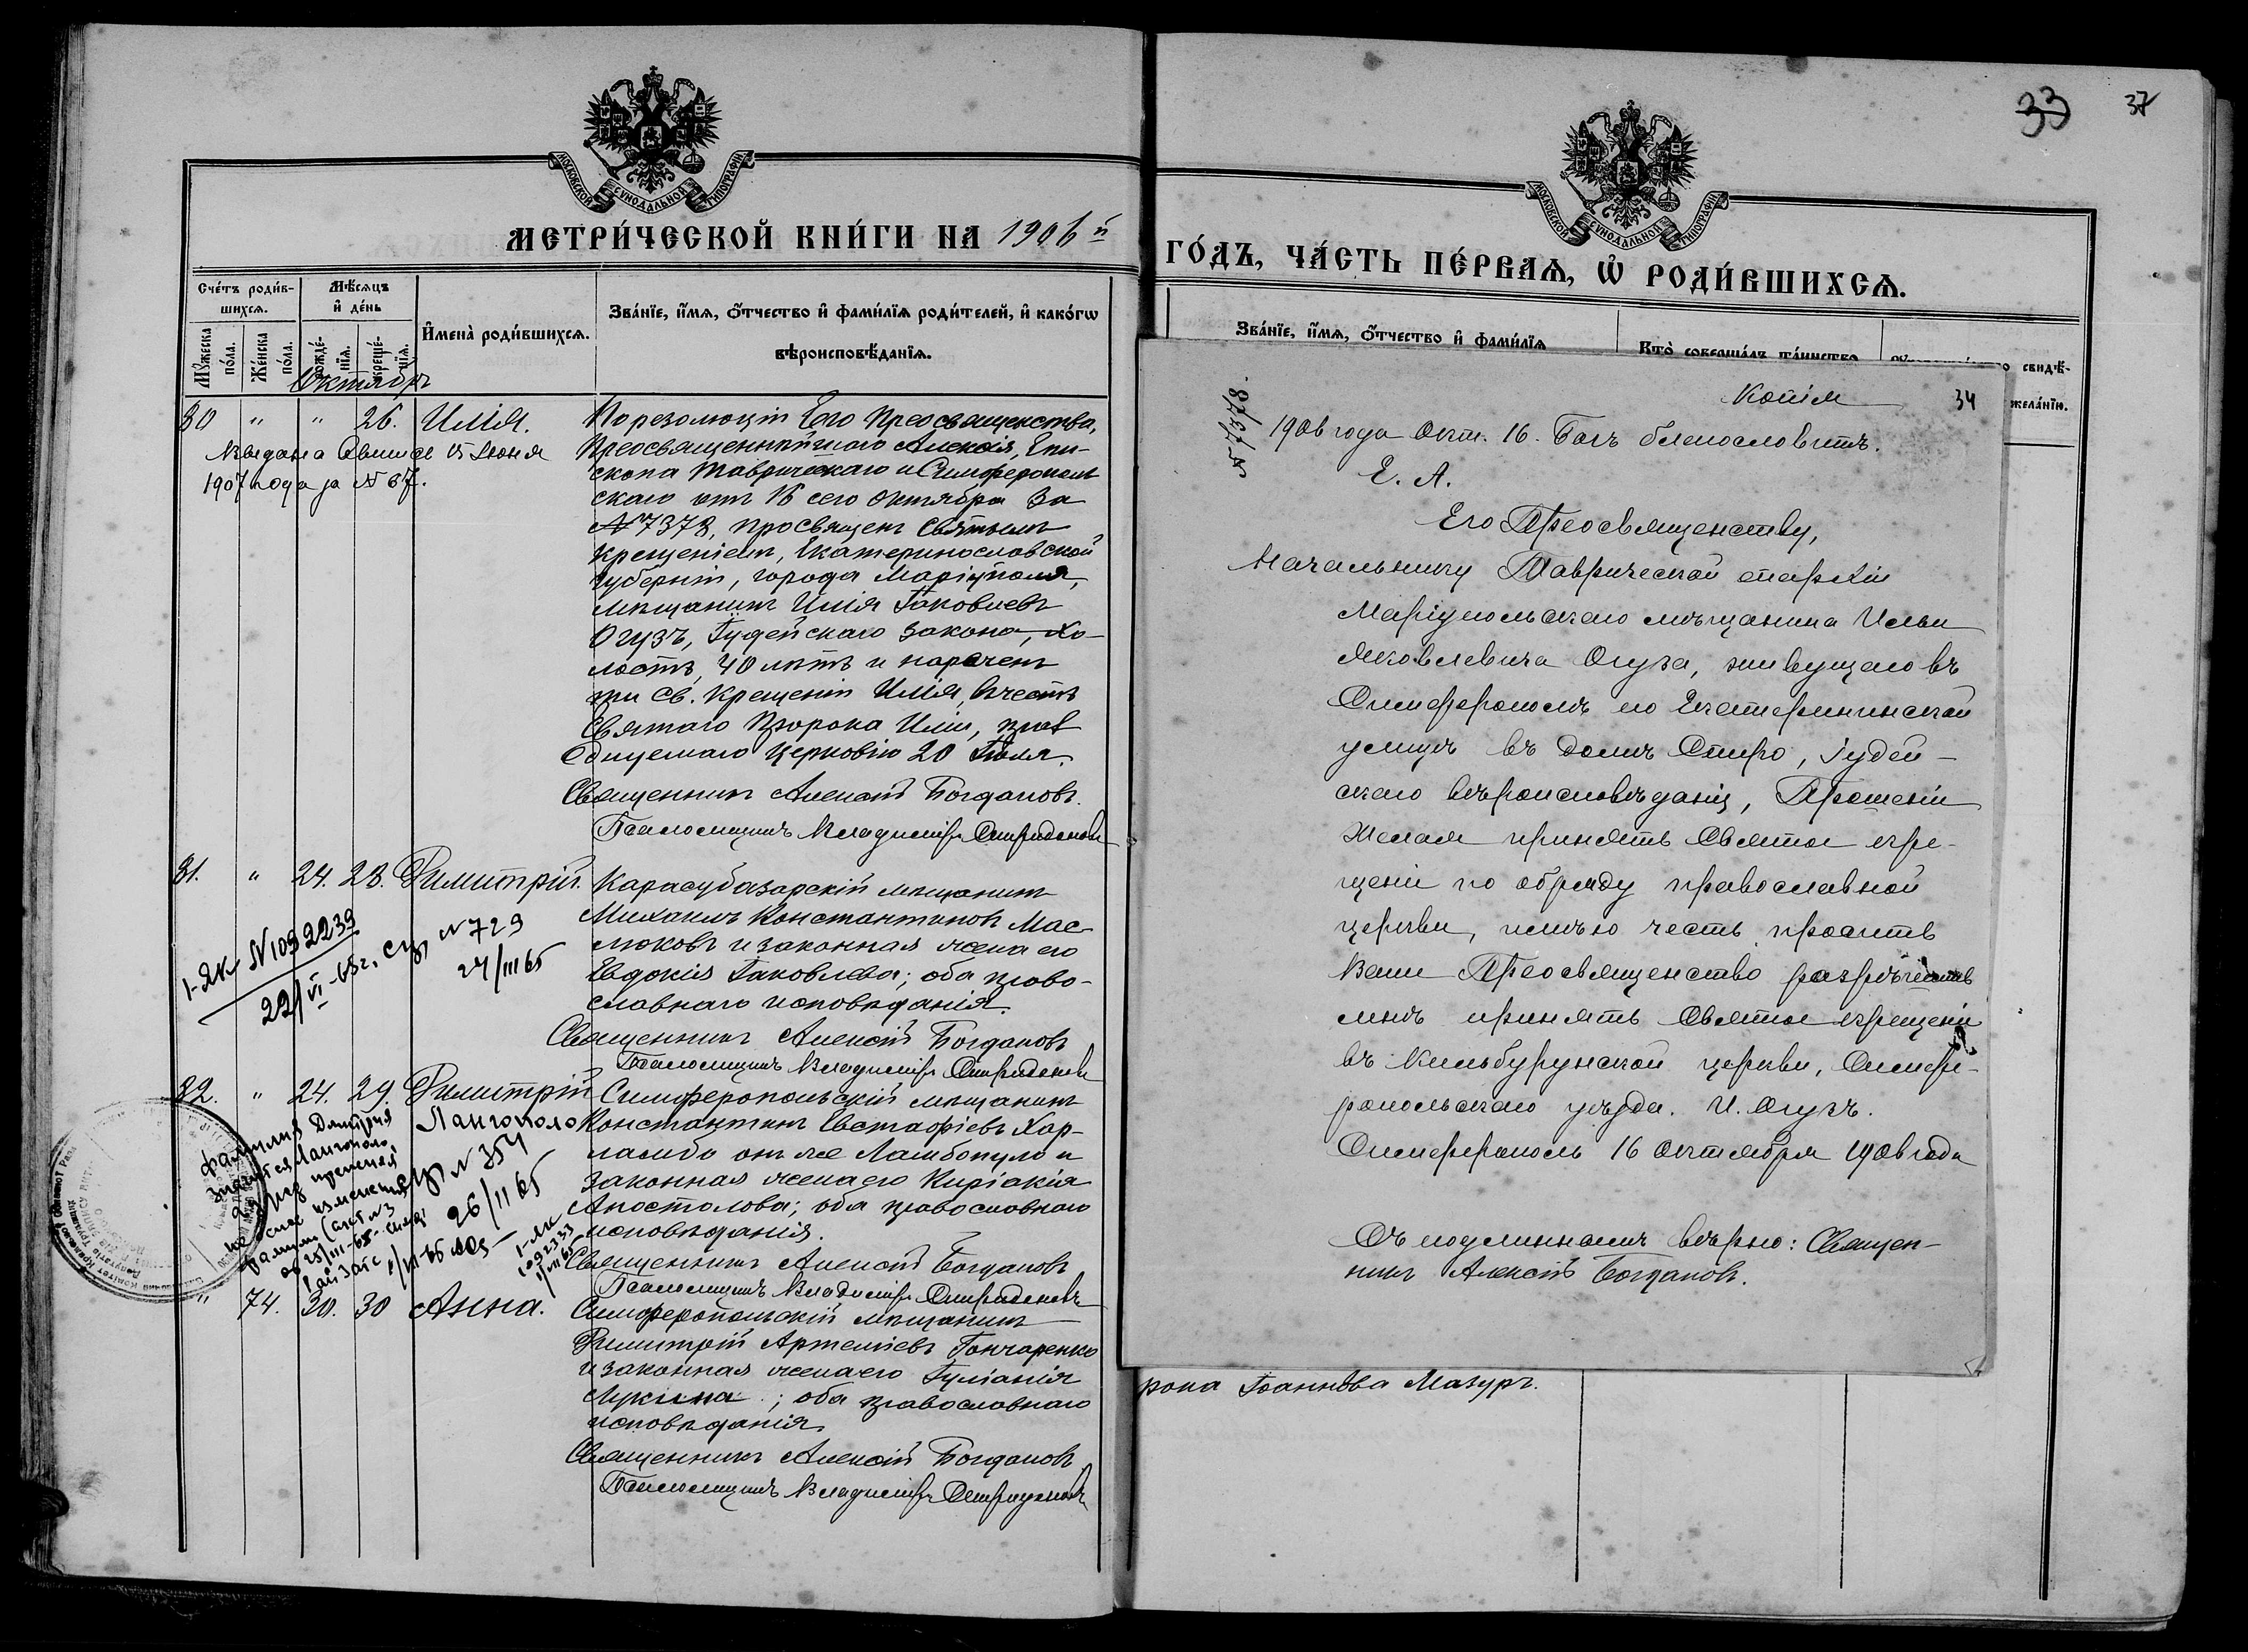 МОСКОВСКОЙ СѴНОДАЛЬНОЙ ТИПОГРАФІИ
МЕТРИ́ЧЕСКОЙ КНИ́ГИ НА 1906 й
Сче́тъ роди́в-
шихся.
Мѣ́сяцъ
и де́нь
Имена̀ роди́вшихся.
Зва́нїе, и́мя, ѻ҆́тчество и҆ фами́лїя роди́телей, и҆ како́гѡ
вѣроисповѣ́данїя.
Мꙋ́жеска по́ла.
Же́нска по́ла.
рожде́-
нїя.
креще́-
нїя.
Октябрь
30 " " 26. Илія.
Выдана Выпись 15 Іюня
1907 года за № 67.
По резолюціи Его Преосвященства,
Преосвященнѣйшаго Алексія, Епи-
скопа Таврическаго и Симферополь
скаго отъ 16 сего Октября за
№ 7378, просвященъ Святымъ
крещеніемъ, Екатеринославской
губерніи, города Маріуполя,
мѣщанинъ Илія Іаковлевъ
Огузъ, Іудейскаго закона, хо-
лостъ, 40 лѣтъ и нареченъ
при св. крещеніи Илія, въ честь
Святаго Пророка Иліи, праз
днуемаго Церковію 20 Іюля.
Священникъ Алексій Богдановъ.
Псаломщикъ Владиміръ Спиридоновъ
31. " 24. 28. Димитрій.
1-ЯК № 109 2239
22/VI-65г. спр № 729
27/III 65
Карасубазарскій мѣщанинъ
Михаилъ Константиновъ Мас-
люковъ и законная жена его
Евдокія Іаковлева; оба право-
славнаго исповѣданія.
Священникъ Алексій Богдановъ
Псаломщикъ Владиміръ Спиридоновъ
32. " 24. 29. Димитрій
Лангополо
фамилия Дмитрия
значится Лангополо,
фамилии (акт № 3
от 25/III-65
спр № 354
26/II 65
1-ЯК
1092333
Симферопольскій мѣщанинъ
Константинъ Евстафіевъ Хар-
лампіо онъ же Ламбопуло и
законная жена его Киріакія
Апостолова; оба православнаго
исповѣданія.
Священникъ Алексій Богдановъ
Псаломщикъ Владиміръ Спиридоновъ
" 74. 30. 30 Анна.
Симферопольскій мѣщанинъ
Димитрій Артеміевъ Гончаренко
и законная жена его Іуліанія
Лукина; оба православнаго
исповѣданія.
Священникъ Алексій Богдановъ
Псаломщикъ Владиміръ Спиридоновъ
33 37
МОСКОВСКОЙ СѴНОДАЛЬНОЙ ТИПОГРАФІИ
ГО́ДЪ, ЧА́СТЬ ПЕ́РВАЯ, Ѡ҆ РОДИ́ВШИХСЯ.
Зва́нїе, и́мя, ѻ҆́тчество и҆ фами́лїя
Кто̀ соверша́лъ та́инство
свидѣ́-
жела́нїю.
Копія 34
№ 7378.
1906 года Окт. 16. Богъ благословитъ.
Е. А.
Его Преосвященству,
Начальнику Таврической епархіи
Маріупольскаго мѣщанина Ильи
Яковлевича Огуза, живущаго въ
Симферополѣ по Екатерининской
улицѣ въ домѣ Спиро, іудей-
скаго вѣроисповѣданія, Прошеніе
Желая принять Святое кре-
щеніе по обряду православной
церкви, имѣю честь просить
Ваше Преосвященство разрѣшить
мнѣ принять Святое крещеніе
въ Кильбурунской церкви, Симфе-
ропольскаго уѣзда. И. Огузъ.
Симферополь 16 Октября 1906 года
Съ подлиннымъ вѣрно: Священ-
никъ Алексій Богдановъ.
рона Іоаннова Мазуръ.